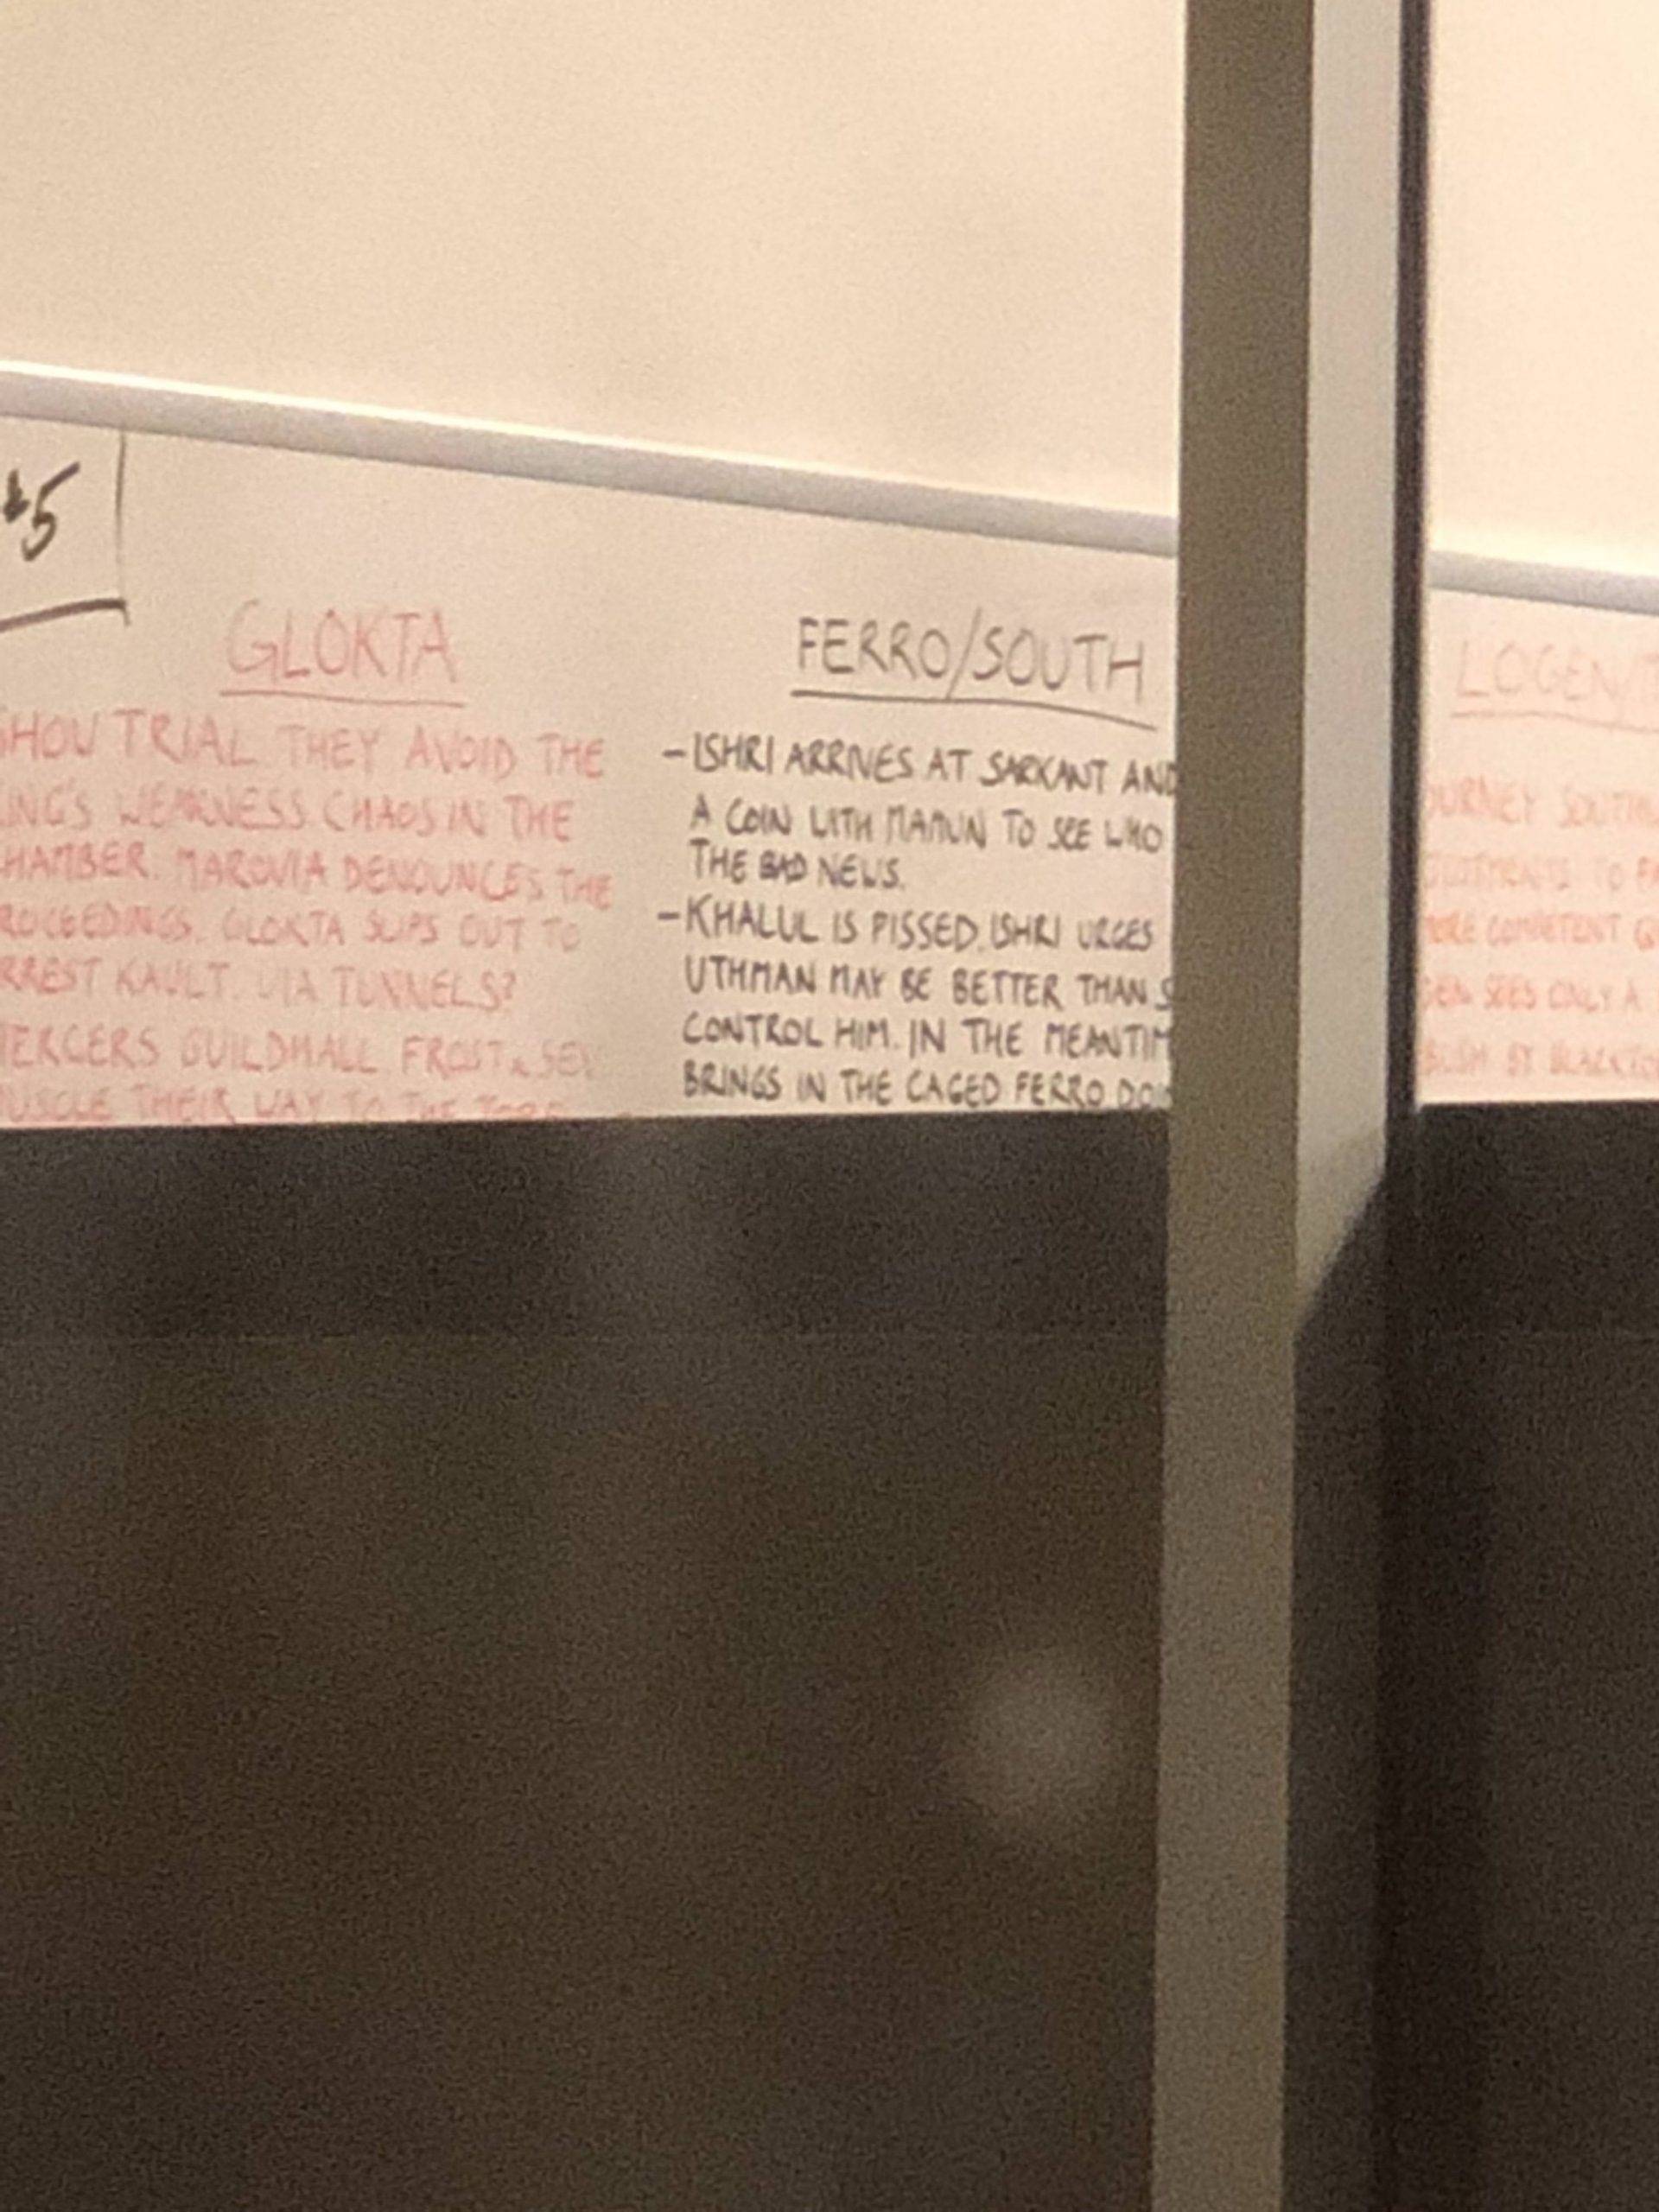 #5
GLOKTA
SHOW TRIAL THEY AVOID THE
ING'S WEAKNESS CHAOS IN THE
HAMBER. MAROVIA DENOUNCES THE
ROCEEDINGS. GLOKTA SLIPS OUT TO
RREST KAULT. VIA TUNNELS?
MERCERS GUILDHALL FROST & SEV
MUSCLE THEIR WAY TO THE
FERRO/SOUTH
- ISHRI ARRIVES AT SARKANT AND
A COIN WITH MAMUN TO SEE WHO
THE BAD NEWS.
- KHALUL IS PISSED. ISHRI URGES
UTHMAN MAY BE BETTER THAN S
CONTROL HIM. IN THE MEANTIM
BRINGS IN THE CAGED FERRO DO
LOGEN/
OURNEY SOUTH
TO
ORE COMPETENT
SEES ONLY A
BUSH BY BLACKTO